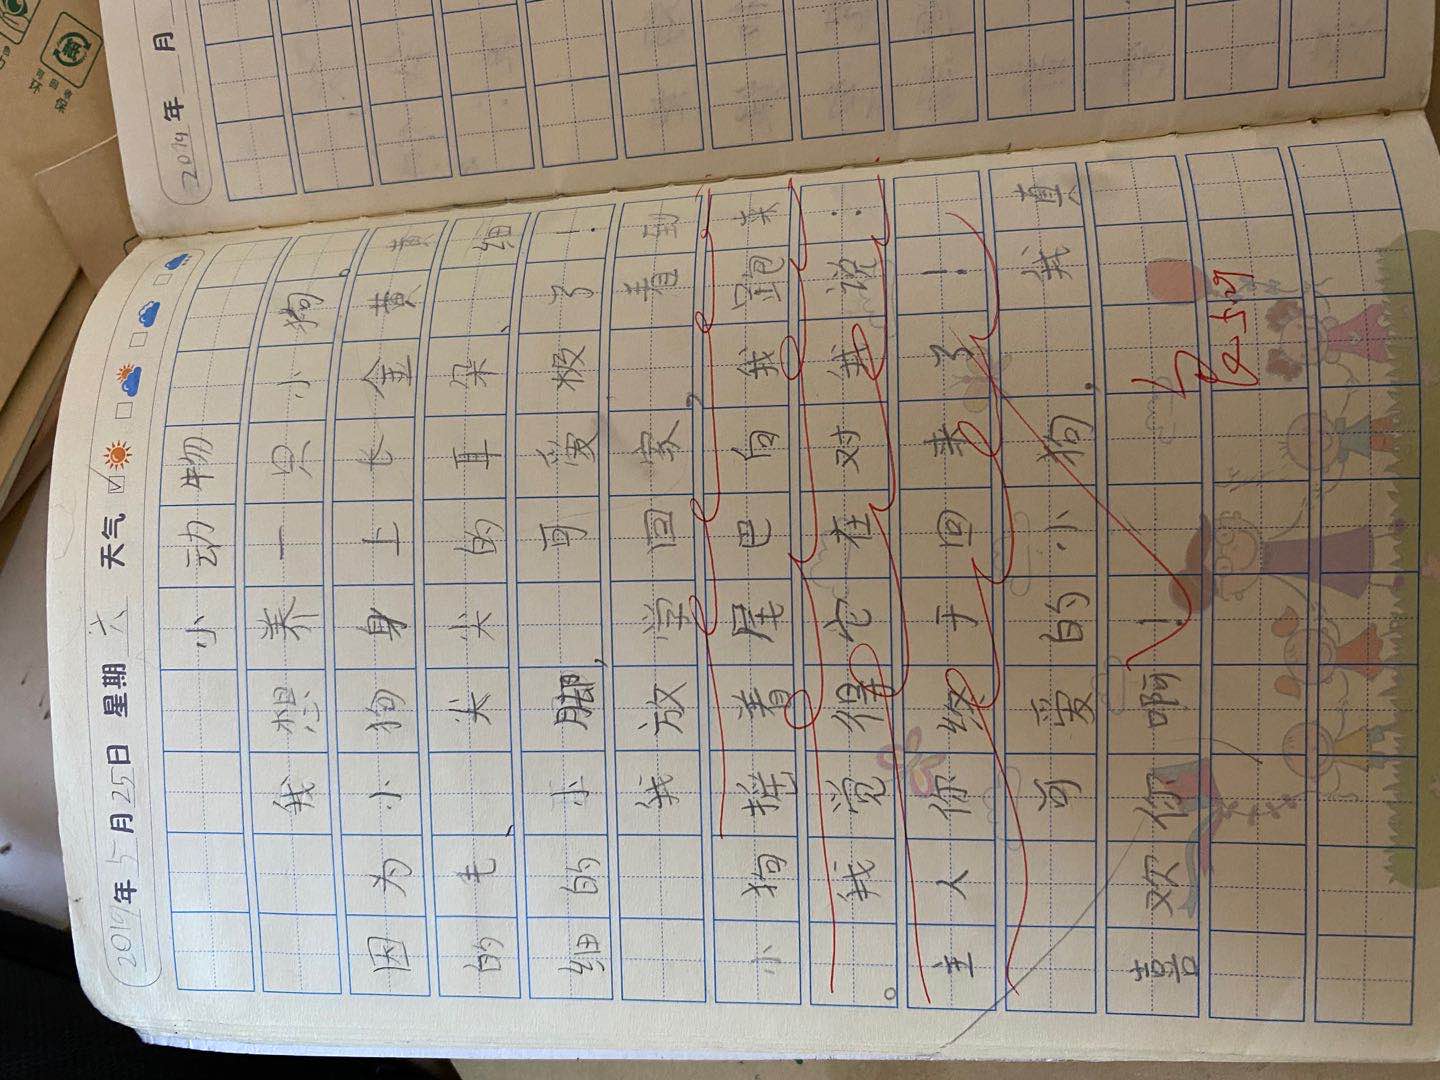 2019年 月
2019年5月25日 星期六 天气
小动物
我想养一只小狗。
因为小狗身上长金黄黄
的毛、尖尖的耳朵、细
细的小脚,可爱极了!
我放学回家,看到
小狗摇着尾巴向我跑来
。我觉得它在对我说:
主人你终于回来了!
可爱的小狗,我真
喜欢你啊!